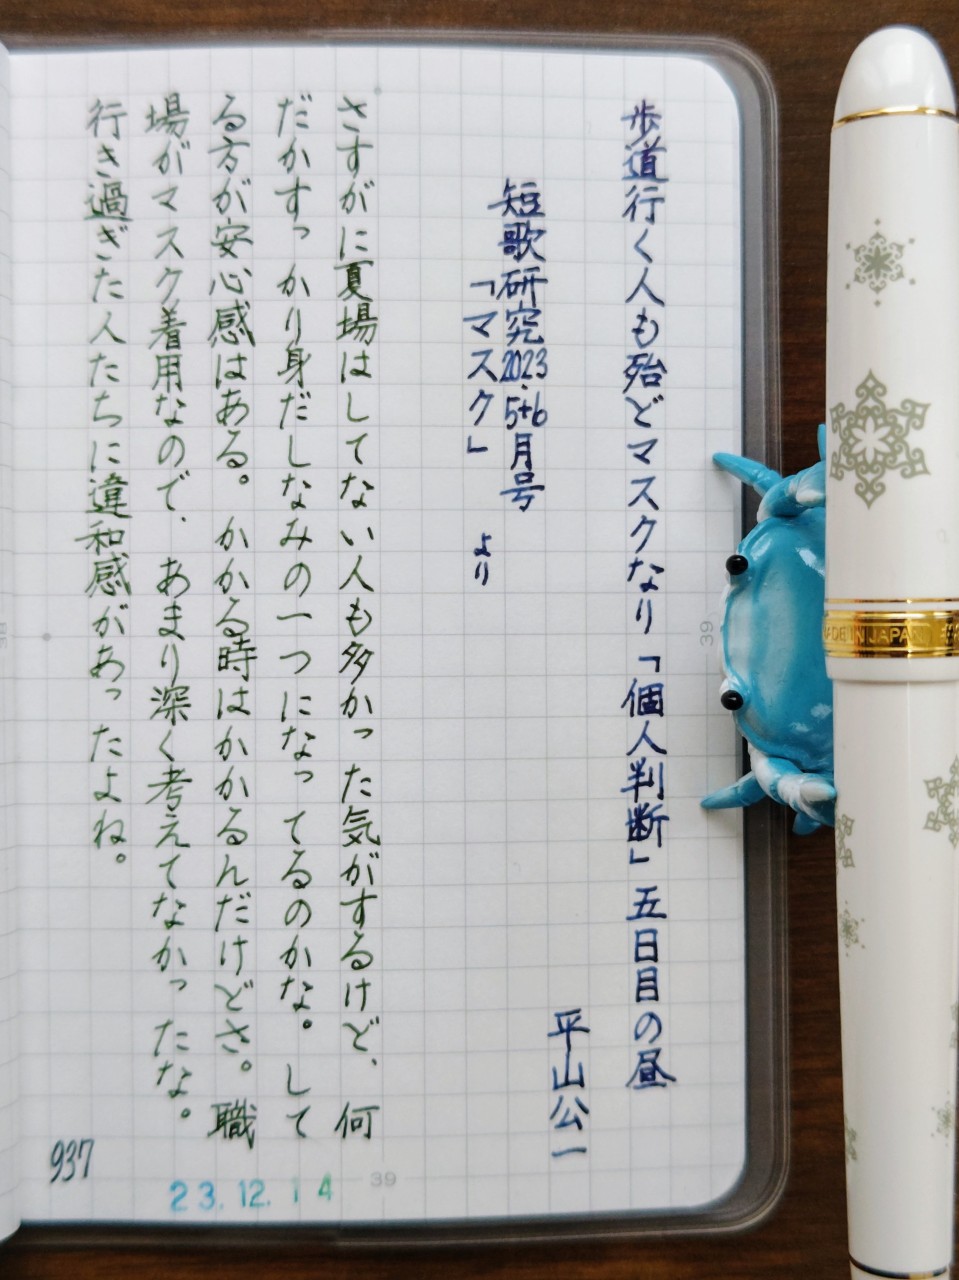 歩道行く人も殆どマスクなり「個人判断」五日目の昼
平山公一
短歌研究2023.5+6月号
「マスク」より
さすがに夏場はしてない人も多かった気がするけど、何
だかすっかり身だしなみの一つになってるのかな。して
る方が安心感はある。かかる時はかかるんだけどさ。職
場がマスク着用なので、あまり深く考えてなかったな。
行き過ぎた人たちに違和感があったよね。
937
23.12.14
39
39
MADE IN JAPAN